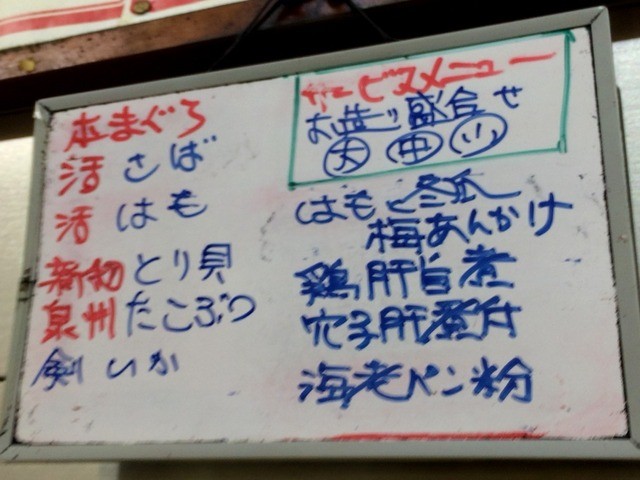 本まぐろ
活さば
活はも
新物とり貝
泉州たこぶつ
剣いか
サービスメニュー
お造り盛合せ
大 中 小
はもと冬瓜
梅あんかけ
鶏肝旨煮
穴子肝
海老パン粉